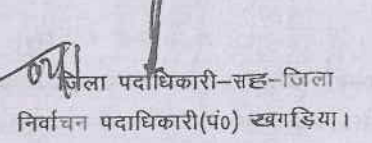 जिला पदाधिकारी-सह-जिला
निर्वाचन पदाधिकारी(पं०) खगड़िया।